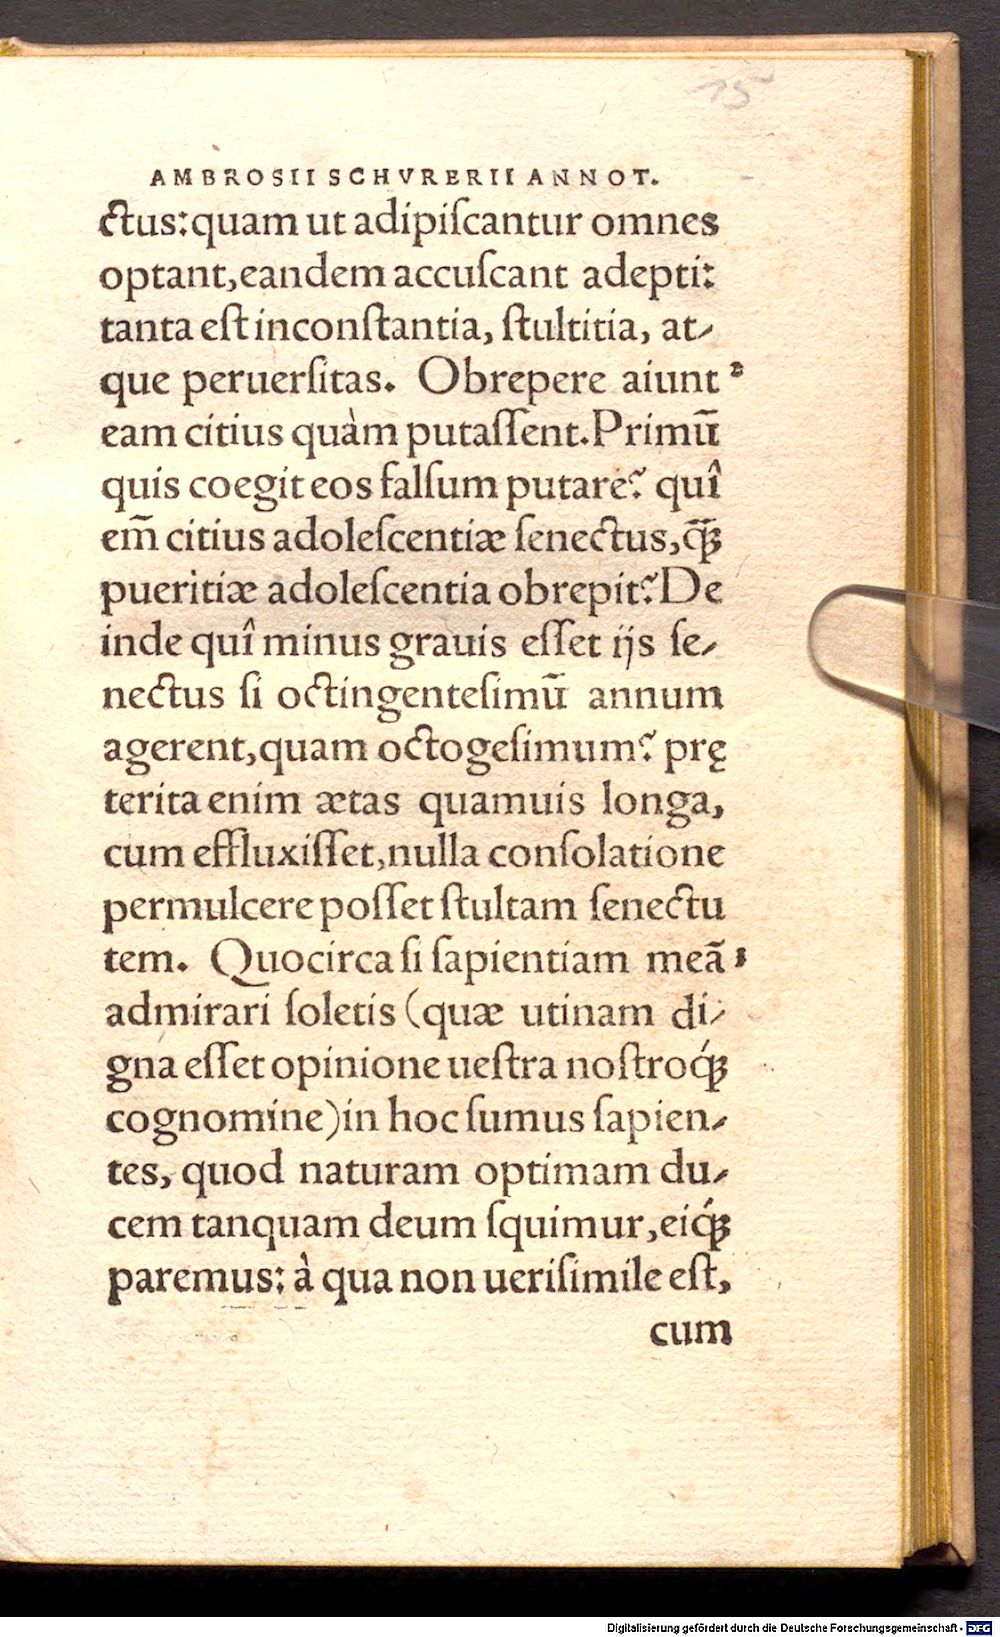 15
AMBROSII SCHVRERII ANNOT.
ctus: quam ut adipiſcantur omnes
optant, eandem accuſcant adepti:
tanta eſt inconſtantia, ſtultitia, at⸗
que peruerſitas. Obrepere aiunt 2
eam citius quàm putaſſent. Primū
quis coegit eos falſum putare? quî
em̄ citius adoleſcentiæ ſenectus, q̄ꝫ
pueritiæ adoleſcentia obrepit? De
inde quî minus grauis eſſet ijs ſe⸗
nectus ſi octingenteſimū annum
agerent, quam octogeſimum? prę
terita enim ætas quamuis longa,
cum effluxiſſet, nulla conſolatione
permulcere poſſet ſtultam ſenectu
tem. Quocirca ſi ſapientiam meā 3
admirari ſoletis (quæ utinam di⸗
gna eſſet opinione ueſtra noſtroq́ꝫ
cognomine) in hoc ſumus ſapien⸗
tes, quod naturam optimam du⸗
cem tanquam deum ſquimur, eiq́ꝫ
paremus: à qua non ueriſimile eſt,
cum
Digitalisierung gefördert durch die Deutsche Forschungsgemeinschaft - DFG